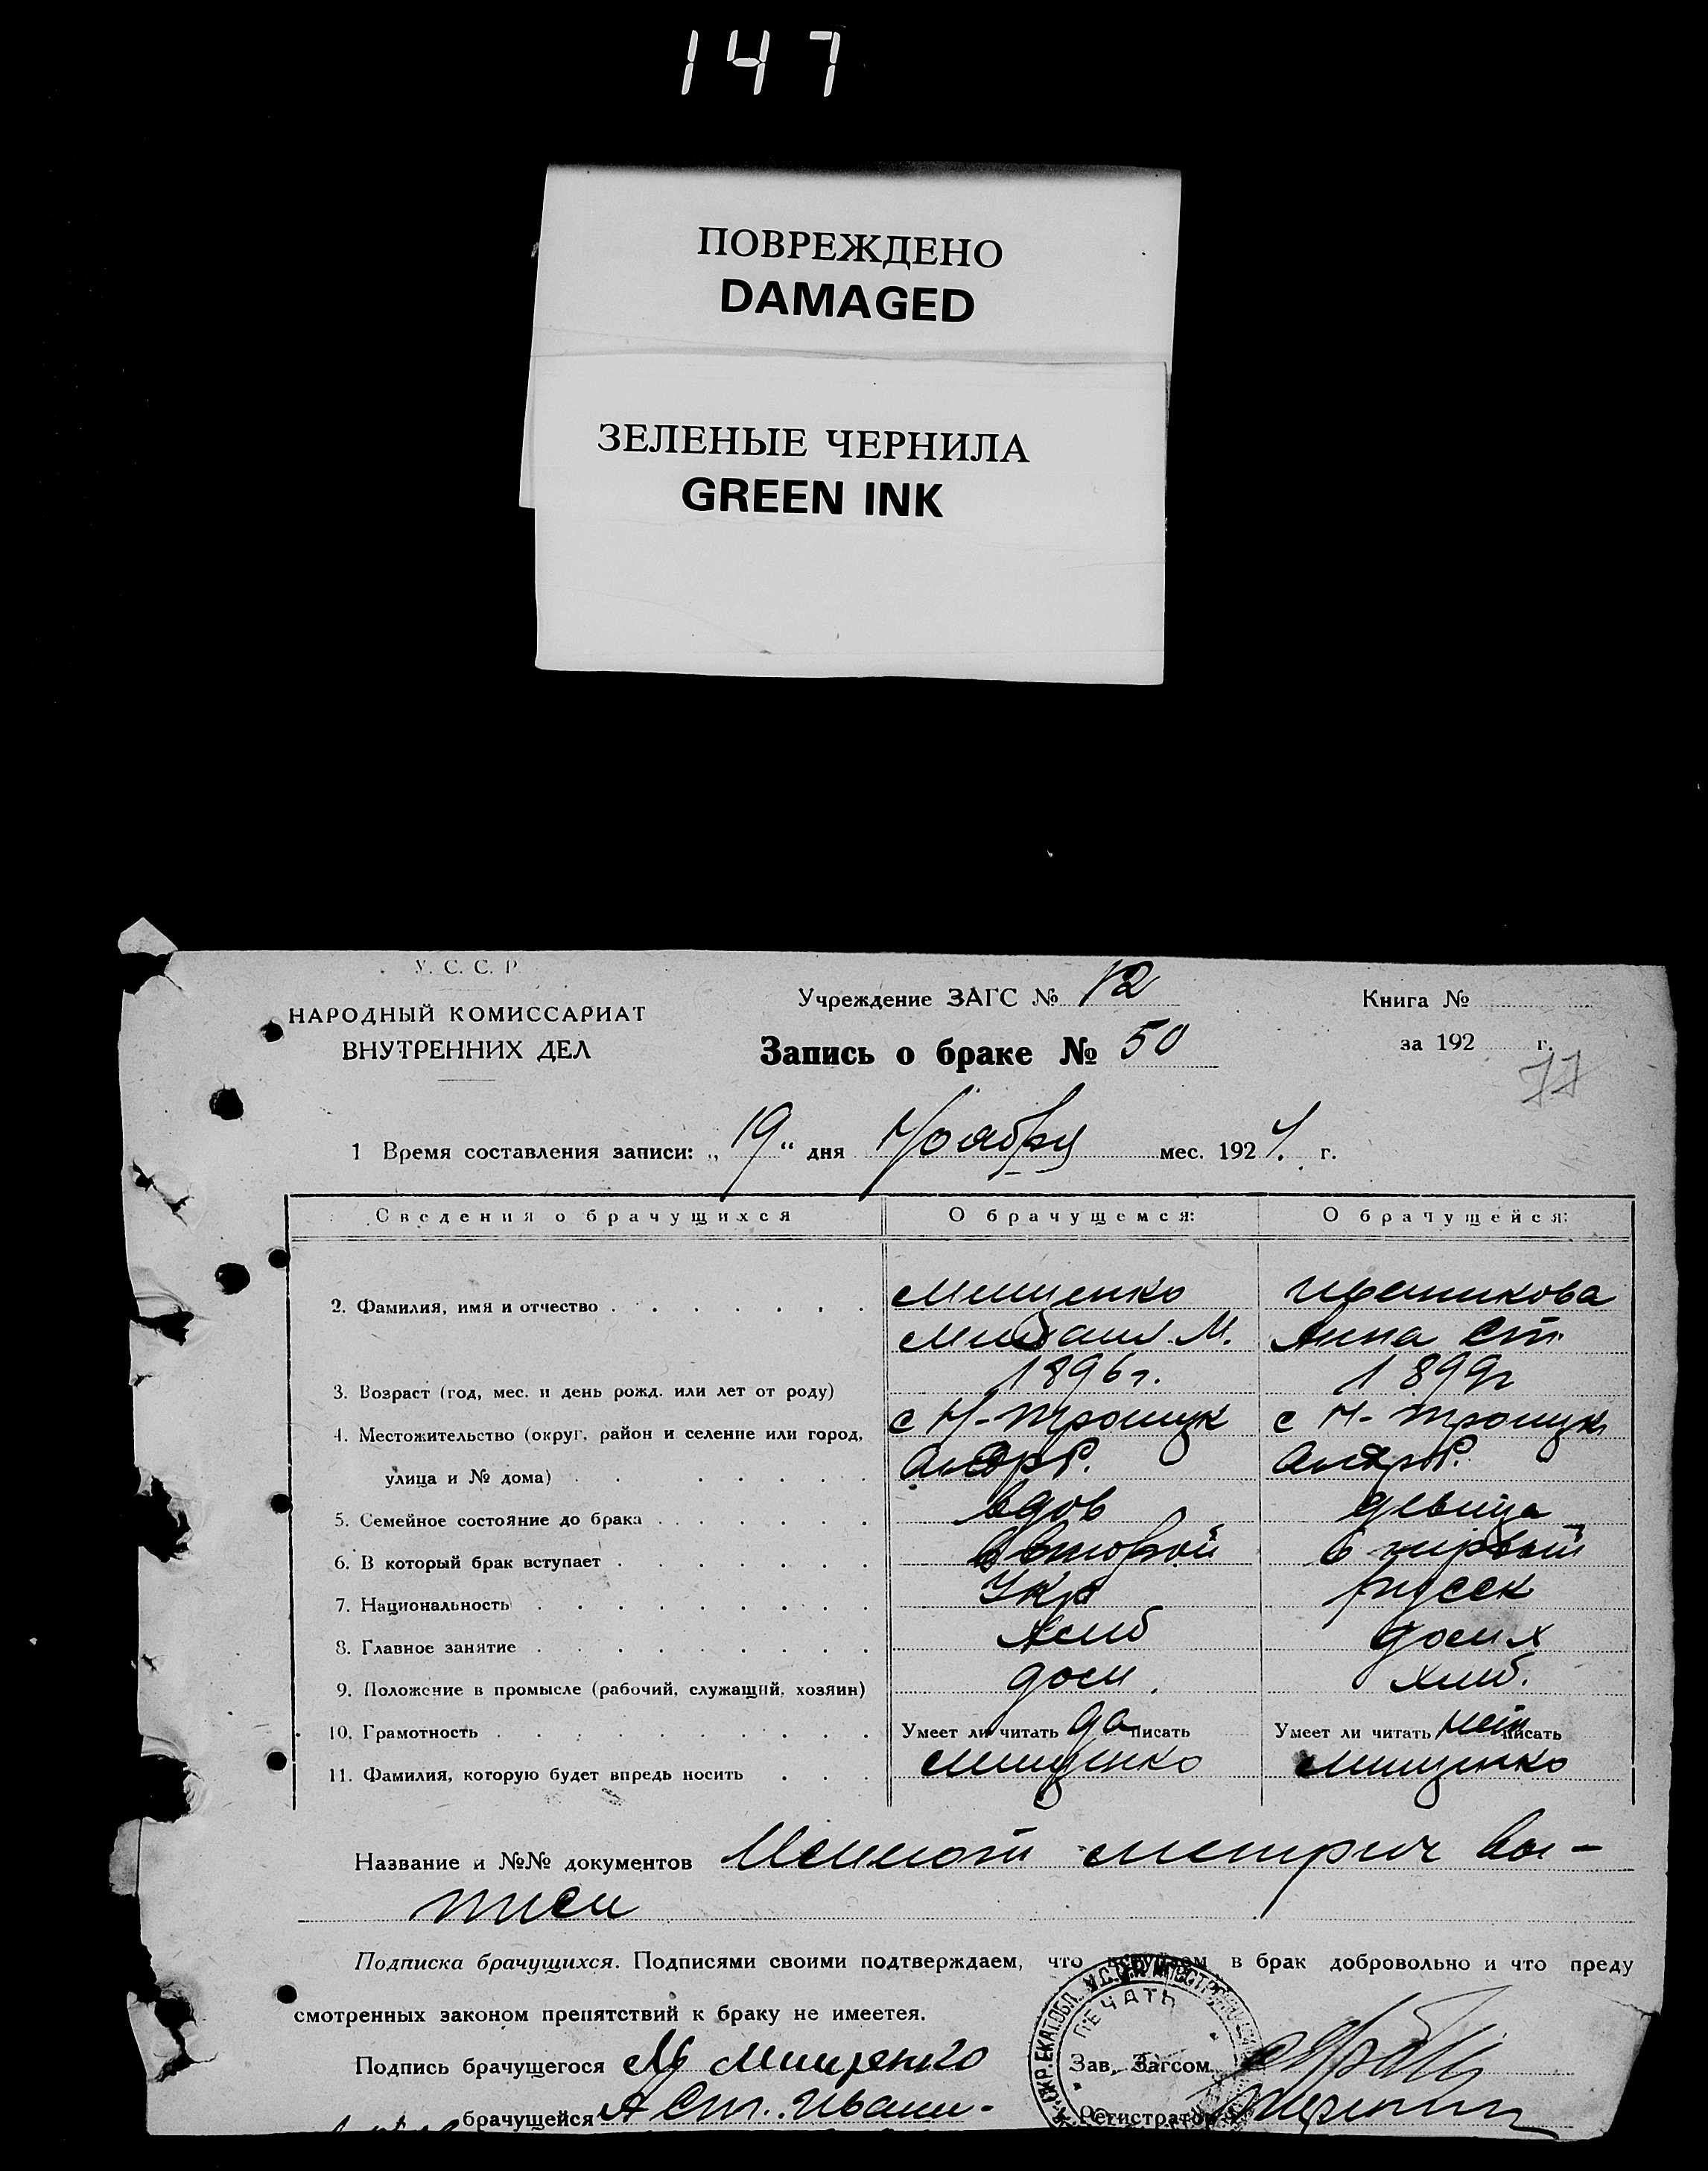 147
ПОВРЕЖДЕНО
DAMAGED
ЗЕЛЕНЫЕ ЧЕРНИЛА
GREEN INK
У. С. С. Р.
НАРОДНЫЙ КОМИССАРИАТ
ВНУТРЕННИХ ДЕЛ
Учреждение ЗАГС № 12
Книга №
Запись о браке № 50
за 192 г.
77
1 Время составления записи: „19“ дня Ноября мес. 1924. г.
Сведения о брачущихся О брачущемся: О брачущейся:
2. Фамилия, имя и отчество Мищенко Ивашикова
Михаил М. Анна Ст.
3. Возраст (год, мес. и день рожд. или лет от роду) 1896г. 1899г
4. Местожительство (округ, район и селение или город, с Н-Троицк с Н-Троицк
улица и № дома) АндрР. АндрР.
5. Семейное состояние до брака вдов девица
6. В который брак вступает во второй в первый
7. Национальность Укр русск
8. Главное занятие хлиб домх
9. Положение в промысле (рабочий, служащий, хозяин) дом. хлиб.
10. Грамотность Умеет ли читать да писать Умеет ли читать нет писать
11. Фамилия, которую будет впредь носить Мищенко Мищенко
Название и №№ документов метрич вы-
писи
Подписка брачущихся. Подписями своими подтверждаем, что в брак добровольно и что преду
смотренных законом препятствий к браку не имеетея.
Подпись брачущегося М Мищенко
ПЕЧАТЬ
Зав. Загсом
брачущейся А Ст. Иваши-
Регистратор